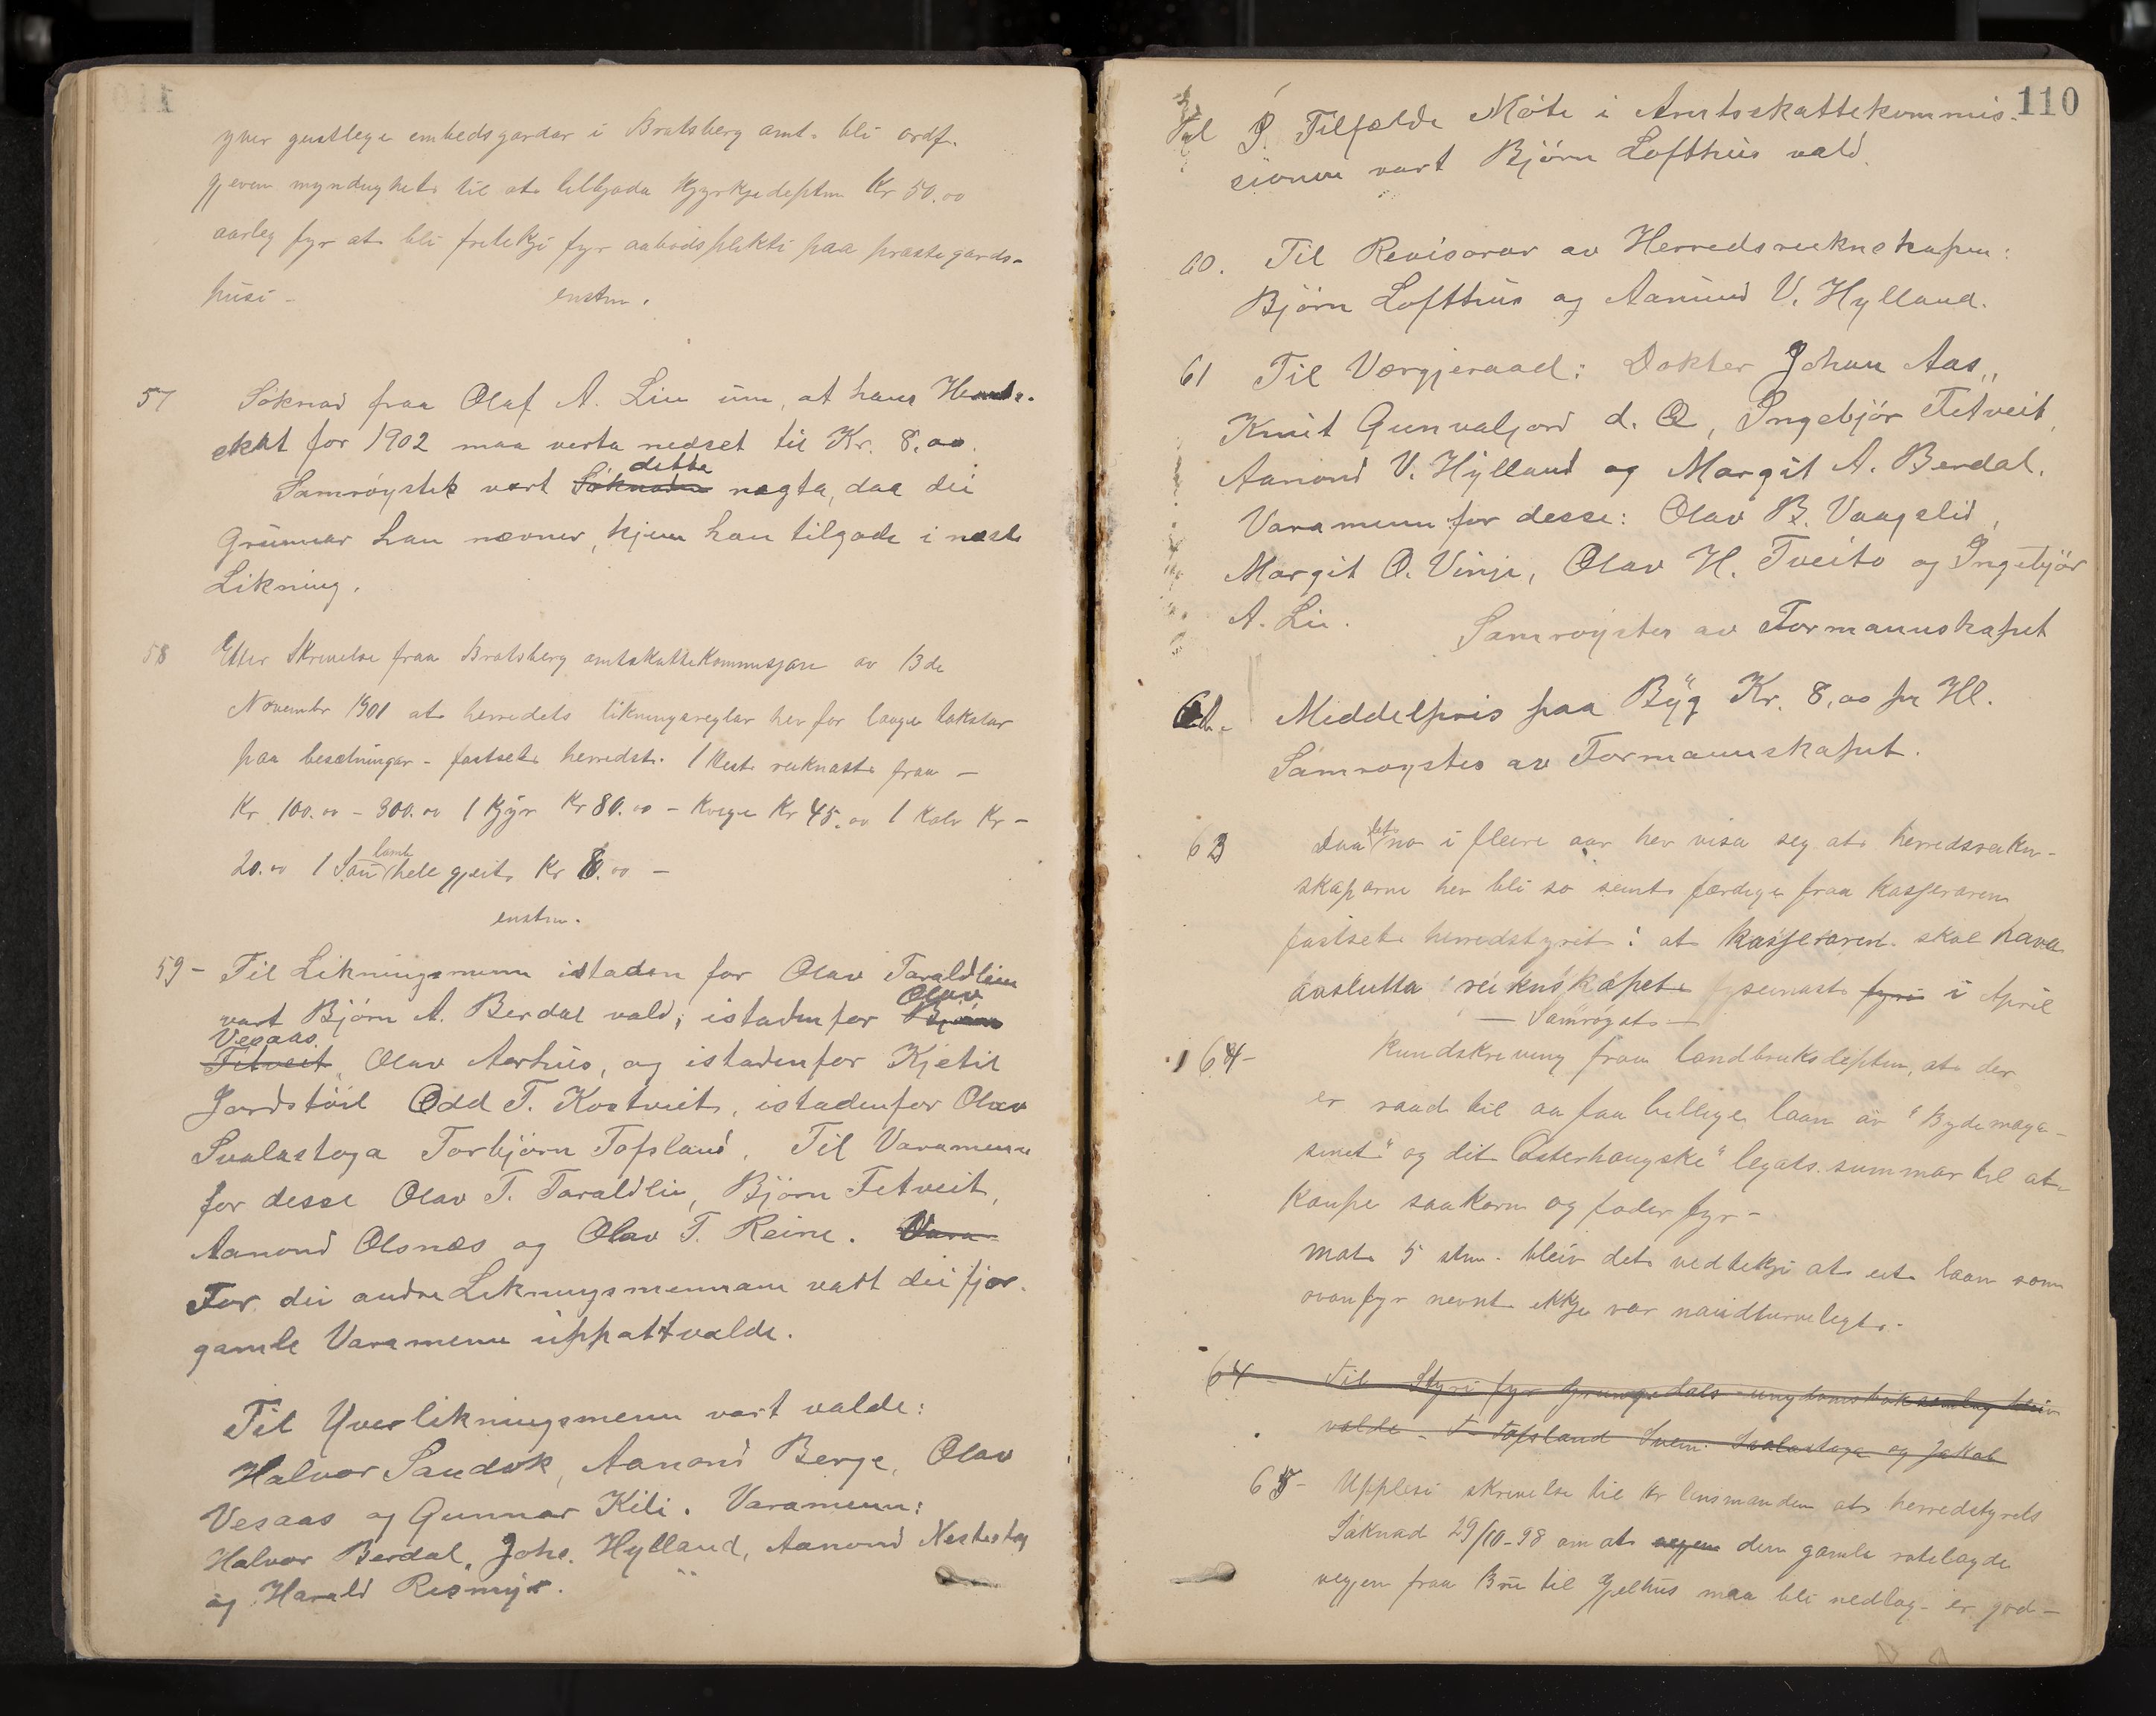 yver geistlege embedsgardar i Bratsberg amt. bli ordf.
gjeven myndughet til at tilbjoda Kyrkjedeptm Kr 50.00
aarleg fyr at bli friteki fyr aabodsplikti paa prestegards-
husi - enstm.
57 Söknad fraa Olaf A. Lin um, at hans Herads-
skat for 1902 maa verta nedset til Kr. 8.00.
Samröystik vart Söknaden dette nægta, daa dei
Grunnar han nævner, kjem han tilgode i næste
Likning.
58 Etter Skrivelse fraa Bratsberg amtskattekommisjon av 13de
November 1901 at herredets likningsreglar hev for lauge takstar
paa besetningar - fastsete herredst. 1 Hest reiknast fraa -
Kr. 100.00 - 300.00 1 Kyr Kr 80.00 - Kvige Kr 45.00 1 Kalv Kr -
20.00 1 Sau lamb hell gjeit Kr 8.00 -
enstm.
59 - Til Likningsmenn istaden for Olav Taraldlien
vart Björn A. Berdal vald; istadenfor Björn Olav
Fitveit Vesaas, Olav Aarhus, og istadenfor Kjetil
Jordstöil Odd T. Kostveit, istadenfor Olav
Svalastoga Torbjörn Tofsland. Til Varamenn
for desse Olav T. Taraldlii, Björn Fetveit,
Aanond Olsnes og Olav T. Reine. Vara-
For dei andre Likningsmennane vart dei fjor-
gamle Varamenn uppattvalde.
Til Yverlikningsmenn vart valde:
Halvor Sandok, Aanond Berge, Olav
Vesaas og Gunnar Kili. Varamenn:
Halvor Berdal, Johs. Hylland, Aanond Nestestog
og Harald Rismyr.
110
Til Tilfælde Möte i Amtsskattekommis-
sionen vart Björn Lofthus vald.
60. Til Revisorar av Herredsreknskapen:
Björn Lofthus og Aanund V. Hylland.
61 Til Vergjeraad: Dokter Johan Aas,
Knut Gunvaljord d. O, Ingebjör Fitveit,
Aanond V. Hylland og Margit A. Berdal.
Varamenn for desse: Olav B. Vaagslid,
Margit O. Vinje, Olav H. Tveito og Ingebjör
A. Lii. Samröystes av Formannskapet
62. Middelpris paa Byg Kr. 8,00 pr Hl.
Samröystes av Formannskapet.
63 Daa det no i fleire aar hev visa seg at herredsreikn-
skaparne hev bli so seint færdige fraa Kasseraren
fastset herredstyrit: at kasseraren skal hava
avslutta reiknskapet seinast fyri i April
- Samröystes -
64 - Rundskriving fraa landbruksdeptm, at der
er raad til aa faa billige laan av "Bydemaga-
sinet" og dit Østerhaugske" legats summar til at
kaupe saakorn og foder fyr -
Mot 5 stm. bleiv det vedteki at eit laan som
ovanfyr nevnt ikkje var naudturvelegt.
64 - Til Styri fyr Grungedals ungdomsboksamling bleiv
valde - T. Tofsland Svein Svalastoga og Jakob
65 - Upplesi skrivelse til hr lensmanden at herredstyrets
Söknad 29/10-98 om at vegen den gamle rotelagde
vegjen fraa Bru til Gjelhus maa bli nedlag - er god-